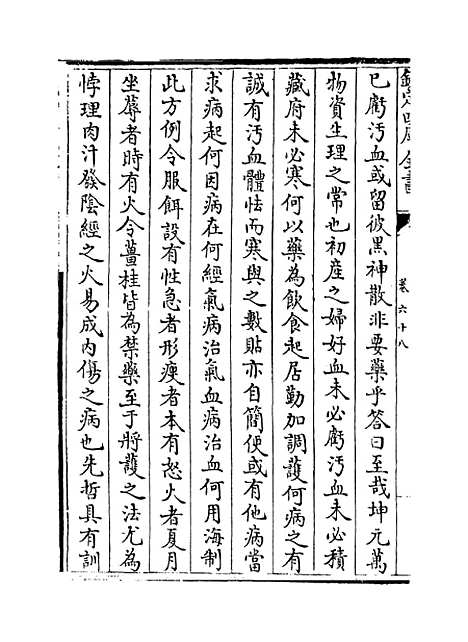 欽定四庫全書
卷六十八
已虧汚血或留彼黒神散非要藥乎答曰至哉坤元萬
物資生理之常也初産之婦好血未必虧汚血未必積
藏府未必寒何以藥為飲食起居勤加調護何病之有
誠有汚血體怯而寒與之數貼亦自簡便或有他病當
求病起何因病在何經氣病治氣血病治血何用海制
此方例令服餌設有性急者形瘦者本有怒火者夏月
坐蓐者時有火令薑桂皆為禁藥至于將護之法尤為
悖理肉汁發陰經之火易成内傷之病也先哲具有訓